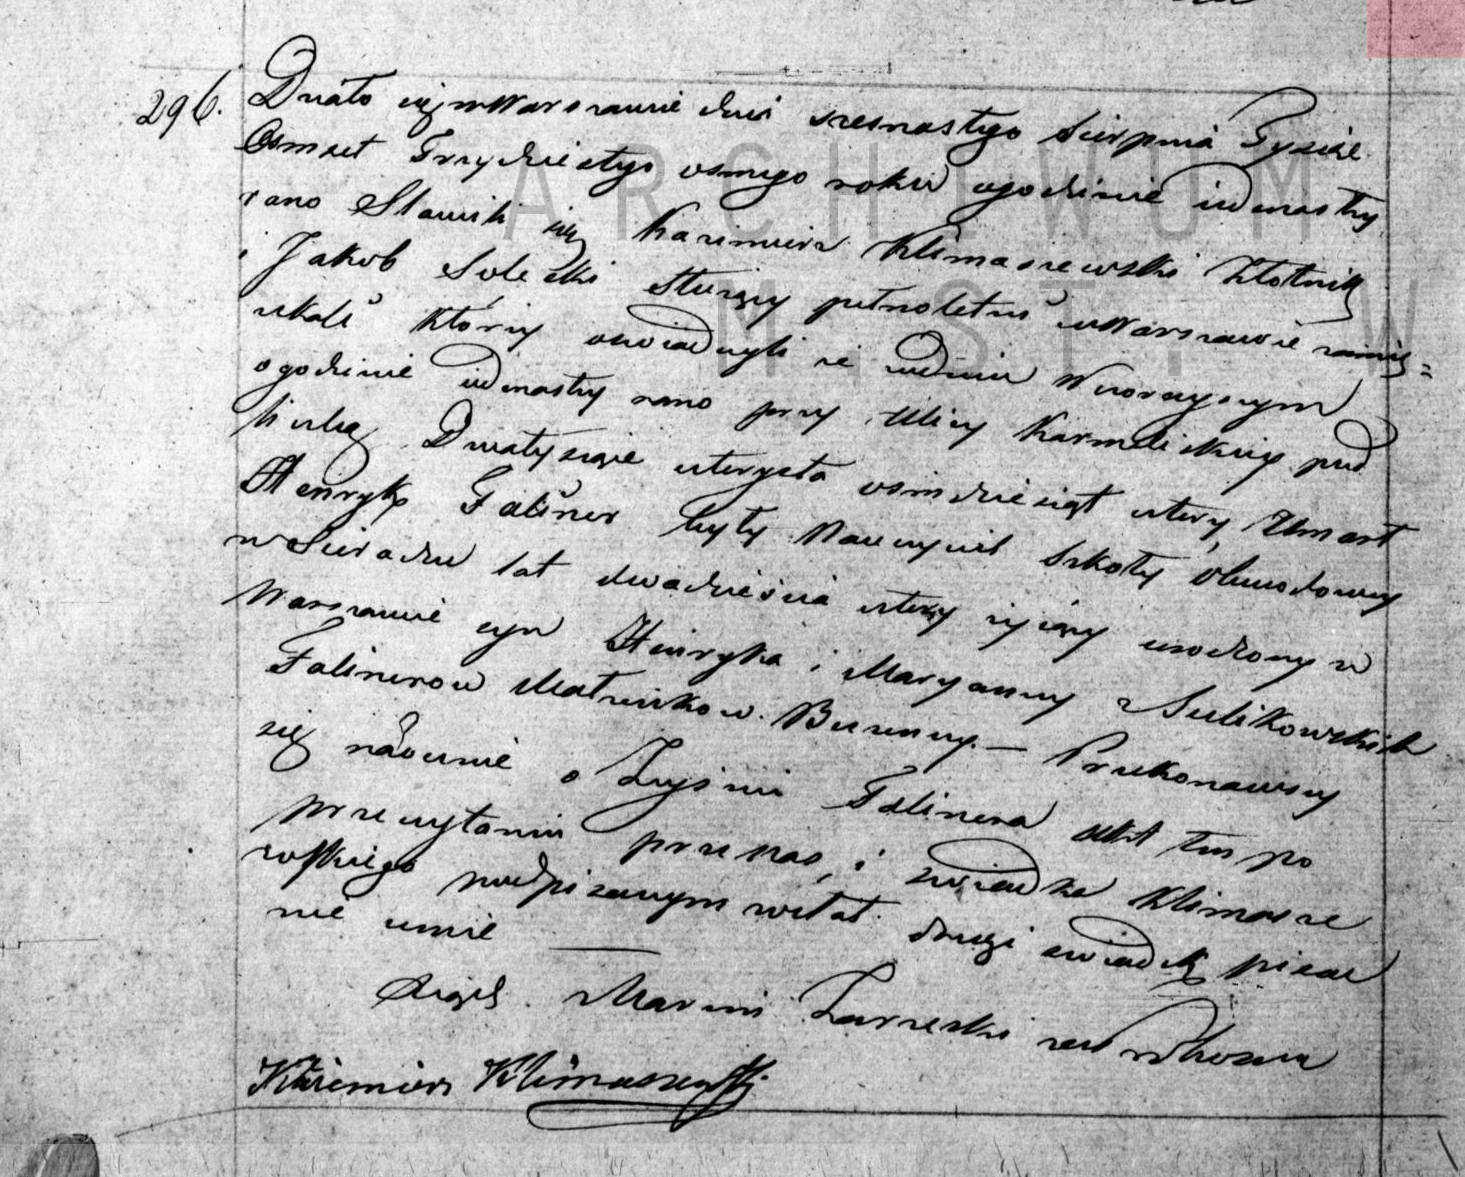 296. Działo się w Warszawie dnia szesnastego Sierpnia Tysiąc
Osmset Trzydziestego osmego roku o godzinie iedenastey
rano Stawili się Kazimierz Klimaszewski Złotnik
i Jakob Solecki Służący pełnoletni w Warszawie zamię=
szkali którzy oswiadczyli że w dniu Wczorayszym
o godzinie iedenastey rano przy Ulicy Karmelickiey pod
liczbą Dwatysiące czterysta osmdziesiąt cztery Umarł
Henryk Faliner były Nauczyciel Szkoły Obwodowey
w Sieradzu lat dwadzieścia cztery maiący urodzony w
Warszawie syn Henryka i Maryanny z Sulikowskich
Falinerow Małżonkow. Bezżenny — Przekonawszy
się naocznie o Zejściu Falinera Akt ten po
przeczytaniu przez nas, i świadka Klimasze
wskiego podpisanym został drugi świadek pisać
nie umie —
Marcin
Kazimierz Klimaszewski
ARCHIWUM
M. ST. W